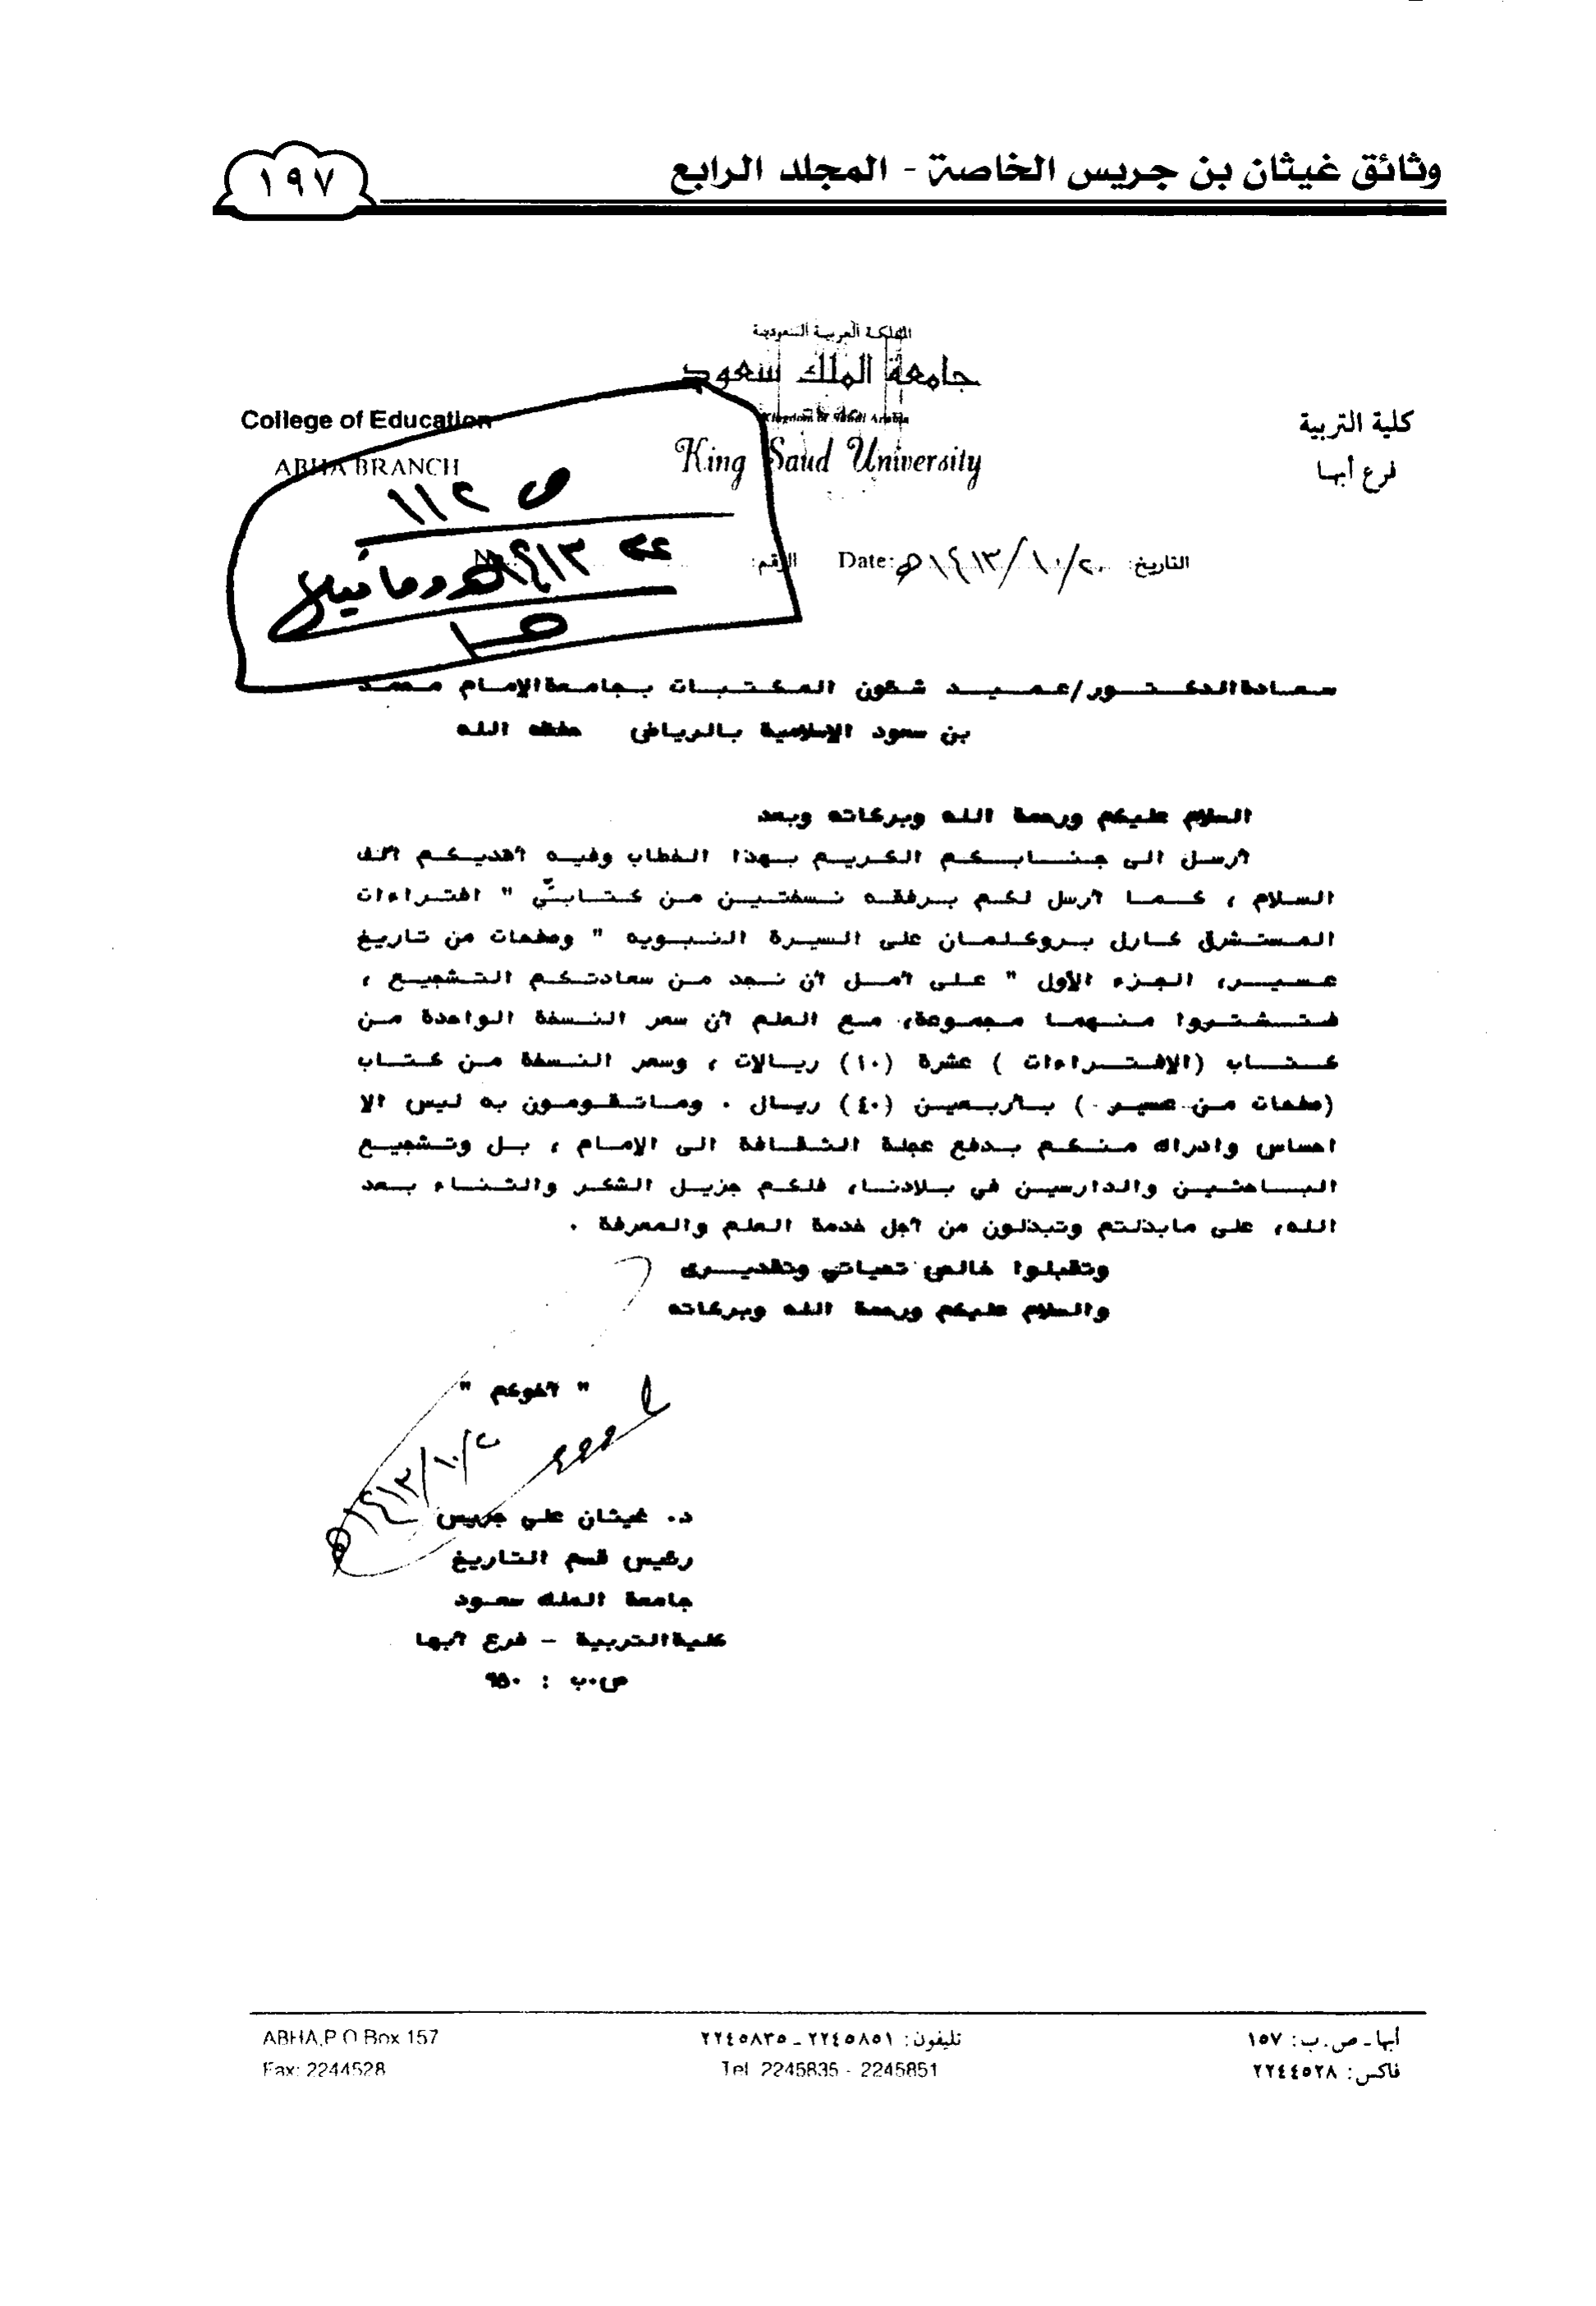 وثائق غيثان بن جريس الخاصة - المجلد الرابع
١٩٧
المملكة العربية السعودية
جامعة الملك سعود
Kingdom of Saudi Arabia
King Saud University
كلية التربية
فرع أبها
College of Education
ABHA BRANCH
التاريخ: ١٤١٣/١٠/٢٠هـ Date:
الرقم:
ص ١١٢
١٤١٣هـ وما قبلها
سعادة الدكتور/عميد شئون المكتبات بجامعة الإمام محمد
بن سعود الإسلامية بالرياض حفظه الله
السلام عليكم ورحمة الله وبركاته وبعد
أرسل الى جنابكم الكريم بهذا الخطاب وفيه أهديكم ألف
السلام ، كما أرسل لكم برفقه نسختين من كتابيّ " افتراءات
المستشرق كارل بروكلمان على السيرة النبويه " وصفحات من تاريخ
عسير، الجزء الأول " على أمل أن نجد من سعادتكم التشجيع ،
فتشتروا منهما مجموعة، مع العلم أن سعر النسخة الواحدة من
كتاب (الإفتراءات ) عشرة (١٠) ريالات ، وسعر النسخة من كتاب
(صفحات من عسير ) بأربعين (٤٠) ريال . وماتقومون به ليس الا
احساس وادراك منكم بدفع عجلة الثقافة الى الإمام ، بل وتشجيع
الباحثين والدارسين في بلادنا، فلكم جزيل الشكر والثناء بعد
الله، على مابذلتم وتبذلون من أجل خدمة العلم والمعرفة .
وتقبلوا خالص تحياتي وتقديرى
والسلام عليكم ورحمة الله وبركاته
" أخوكم "
د. غيثان علي جريس
رئيس قسم التاريخ
جامعة الملك سعود
كلية التربية – فرع أبها
ص.ب : ٩٥٠
أبها ـ ص. ب: ١٥٧
فاكس: ٢٢٤٤٥٢٨
تليفون: ٢٢٤٥٨٥١ ـ ٢٢٤٥٨٣٥
Tel 2245835 - 2245851
ABHA,P O Box 157
Fax: 2244528